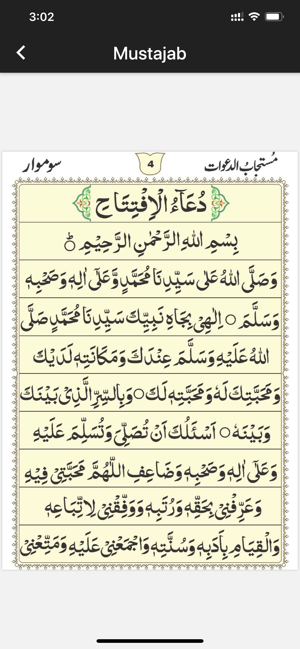 3:02
Mustajab
مُستجابُ الدعوات
4
سوموار
دُعَآءُ الْاِفْتِتَاح
بِسْمِ اللهِ الرَّحْمٰنِ الرَّحِيْمِ
وَصَلَّى اللهُ عَلٰى سَيِّدِنَا مُحَمَّدٍ وَّعَلٰى اٰلِهٖ وَصَحْبِهٖ
وَسَلَّمَ ○ اِلٰهِىْ بِجَاهِ نَبِيِّكَ سَيِّدِنَا مُحَمَّدٍ صَلَّى
اللهُ عَلَيْهِ وَسَلَّمَ عِنْدَكَ وَمَكَانَتِهٖ لَدَيْكَ
وَمَحَبَّتِكَ لَهٗ وَمَحَبَّتِهٖ لَكَ ○ وَبِالسِّرِّ الَّذِىْ بَيْنَكَ
وَبَيْنَهٗ ○ اَسْئَلُكَ اَنْ تُصَلِّىَ وَتُسَلِّمَ عَلَيْهِ
وَعَلٰى اٰلِهٖ وَصَحْبِهٖ وَضَاعِفِ اللّٰهُمَّ مَحَبَّتِىْ فِيْهِ
وَعَرِّفْنِىْ بِحَقِّهٖ وَرُتَبِهٖ وَوَفِّقْنِىْ لِاتِّبَاعِهٖ
وَالْقِيَامِ بِاَدَبِهٖ وَسُنَّتِهٖ وَاجْمَعْنِىْ عَلَيْهِ وَمَتِّعْنِىْ